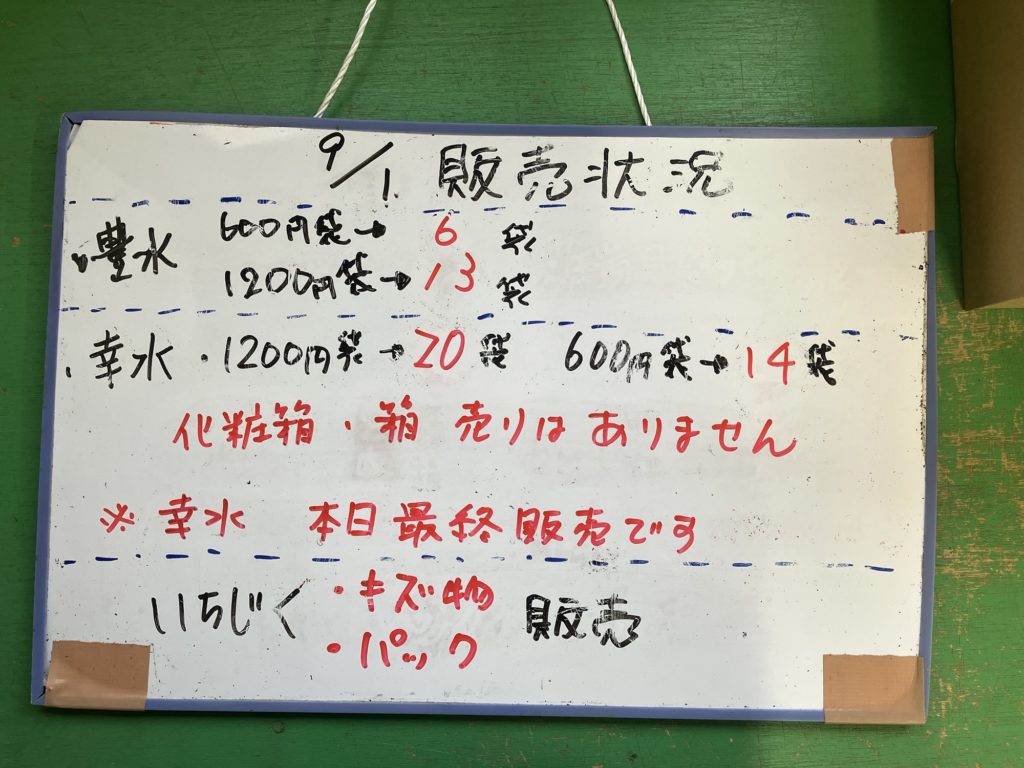 9/1. 販売状況
・豊水 600円袋→6 袋
1200円袋→13 袋
・幸水・1200円袋→20袋 600円袋→14袋
化粧箱・箱 売りはありません
※ 幸水 本日最終販売です
いちじく ・キズ物 販売
・パック